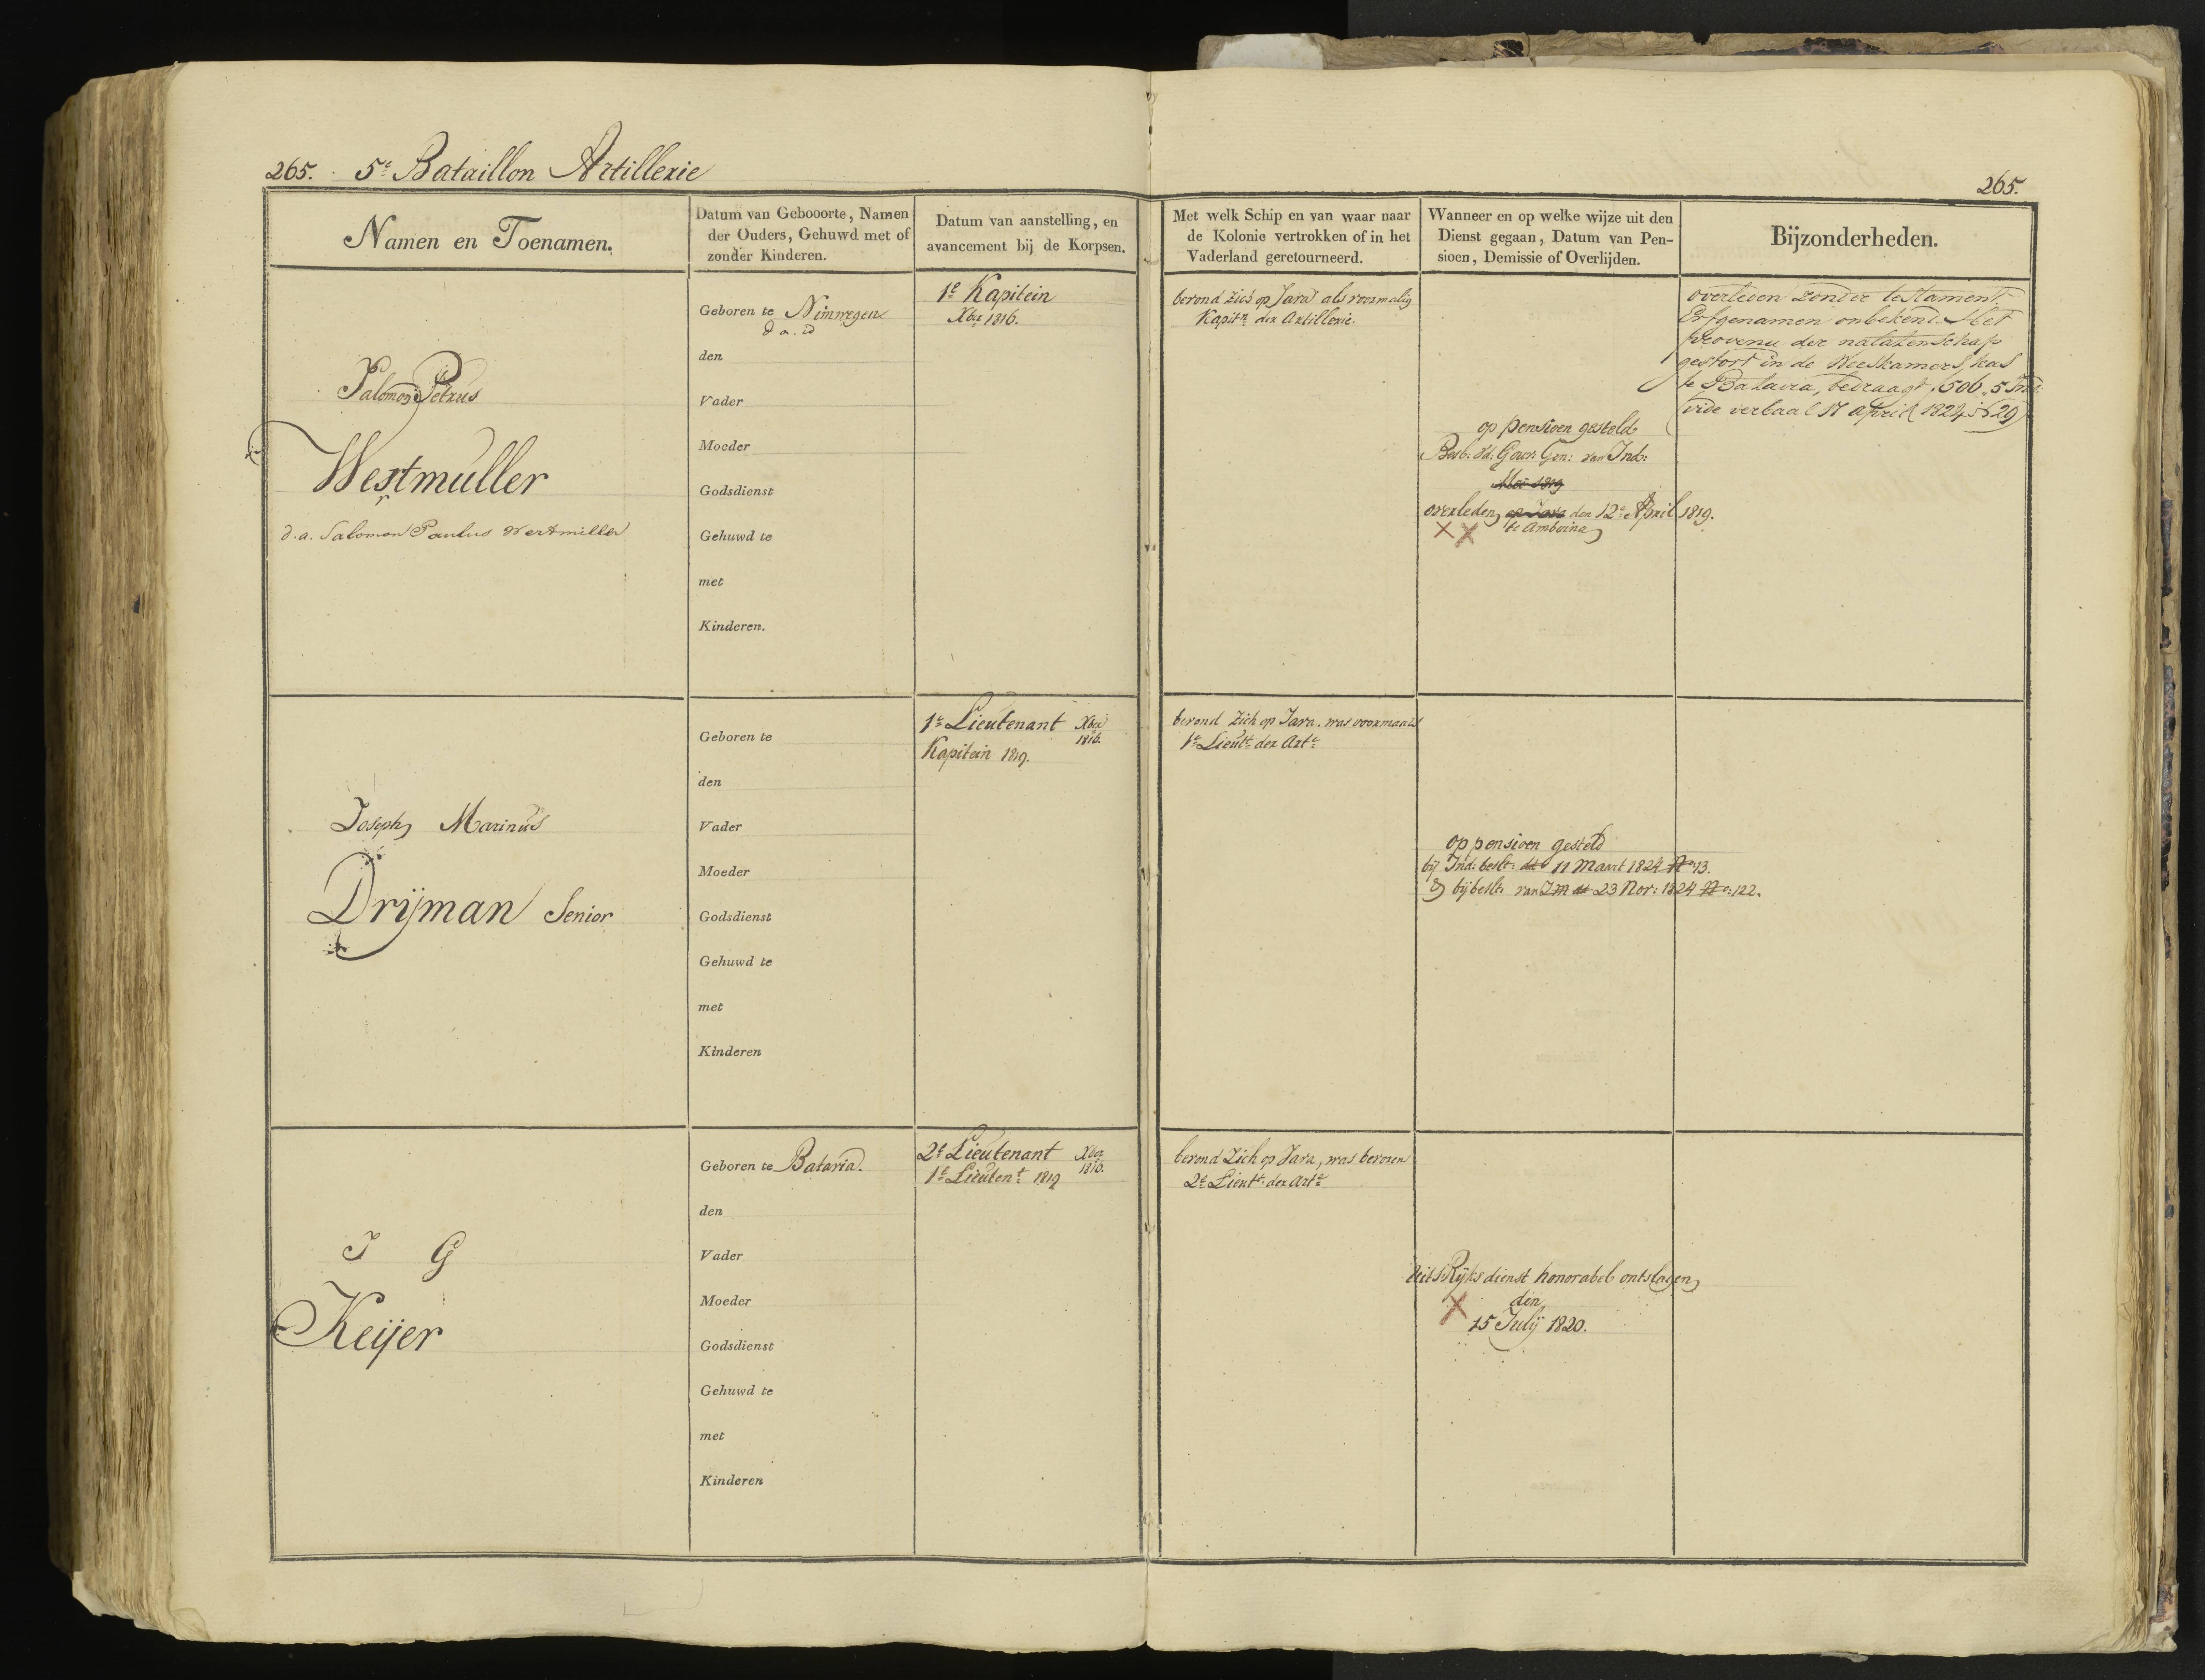 265. 5e Bataillon Artillerie
265.
Namen en Toenamen.
Datum van Gebooorte, Namen
der Ouders, Gehuwd met of
zonder Kinderen.
Datum van aanstelling, en
avancement bij de Korpsen.
Met welk Schip en van waar naar
de Kolonie vertrokken of in het
Vaderland geretourneerd.
Wanneer en op welke wijze uit den
Dienst gegaan, Datum van Pen-
sioen, Demissie of Overlijden.
Bijzonderheden.
Salomon Petrus
Westmuller
r
d.a. Salomon Paulus Wertmiller
Geboren te Nimwegen
d a. id
den
Vader
Moeder
Godsdienst
Gehuwd te
met
Kinderen.
1e Kapitein
Xber 1816.
bevond zich op Java als voormalig
Kapitn der Artillerie.
op pensioen gesteld
Besl: v.d. Gouv: Gen: van Ind:
Mei 1819
overleden op Java den 12e April 1819.
te Amboina
overleden zonder testament.
Erfgenamen onbekend. Het
provenu der nalatenschap
gestort in de Weeskamers kas
te Batavia, bedraagt f 506,5 Ind:
(vide verbaal 17 april 1824 No 29)
Joseph Marinus
Drijman Senior
Geboren te
den
Vader
Moeder
Godsdienst
Gehuwd te
met
Kinderen
1e Lieutenant Xber
1816.
Kapitein 1819.
bevond zich op Java. was voormaals
1e Lieutt der Arte
op pensioen gesteld
bij Ind: beslt: dd 11 Maart 1824 No 13.
& bij beslt: van ZM dd 23 Nov: 1824 No: 122.
J G
Keijer
Geboren te Batavia.
den
Vader
Moeder
Godsdienst
Gehuwd te
met
Kinderen
2e Lieutenant Xber
1816.
1e Lieutent 1819
bevond Zich op Java, was bevoren
2e Lieutt: der Arte
uit s Rijks dienst honorabel ontslagen
den
15 Julij 1820.